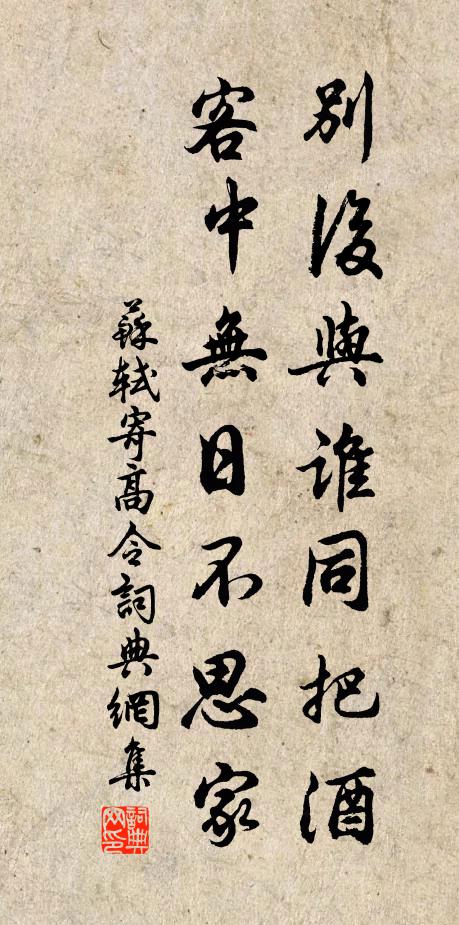 別後與誰同把酒
客中無日不思家
蘇軾寄高令詞典網集
詞典網印